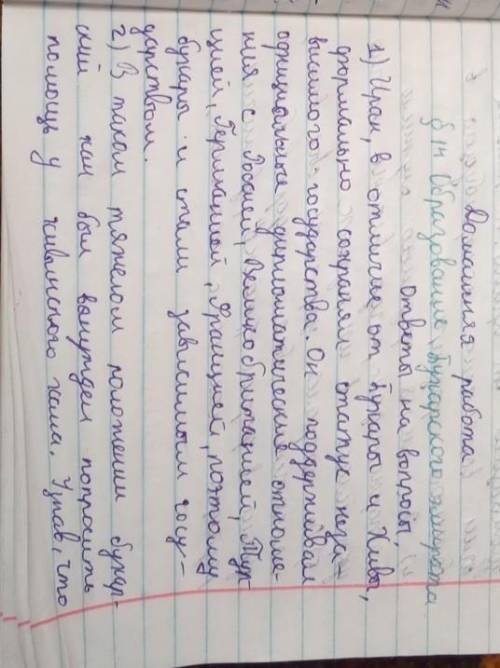 Домашняя работа
§ 14 Образование Бухарского эмирата
Ответы на вопросы,
1) Иран, в отличие от Бухары и Хивы,
формально сохранял статус неза-
висимого государства. Он поддерживал
официальные дипломатические отноше-
ния с Россией, Великобританией, Тур-
цией, Германией, Францией, поэтому
бухары и стали зависимым госу-
дарством.
2) В таком тяжелом положении бухар-
ский хан был вынужден попросить
помощь у хивинского хана. Узнав, что